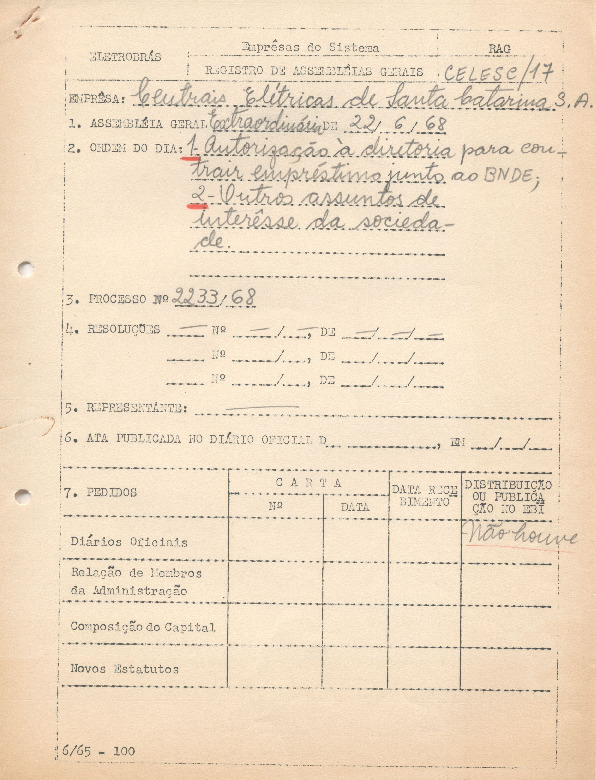 ELETROBRÁS
Emprêsas do Sistema
RAG
REGISTRO DE ASSEMBLÉIAS GERAIS
CELESC/17
EMPRÊSA: Centrais Elétricas de Santa Catarina S.A.
1. ASSEMBLÉIA GERAL Extraordinária DE 22/6/68
2. ORDEM DO DIA: 1- Autorização à diretoria para con-
trair empréstimo junto ao BNDE;
2- Outros assuntos de
interêsse da socieda-
de.
3. PROCESSO Nº 2233/68
4. RESOLUÇÕES — Nº — / —, DE — / — / —
Nº / , DE / /
Nº / , DE / /
5. REPRESENTANTE: —
6. ATA PUBLICADA NO DIÁRIO OFICIAL D , EM / /
7. PEDIDOS
C A R T A
Nº
DATA
DATA RECE
BIMENTO
DISTRIBUIÇÃO
OU PUBLICA
ÇÃO NO EBI
Diários Oficiais
Não houve
Relação de Membros
da Administração
Composição do Capital
Novos Estatutos
6/65 - 100